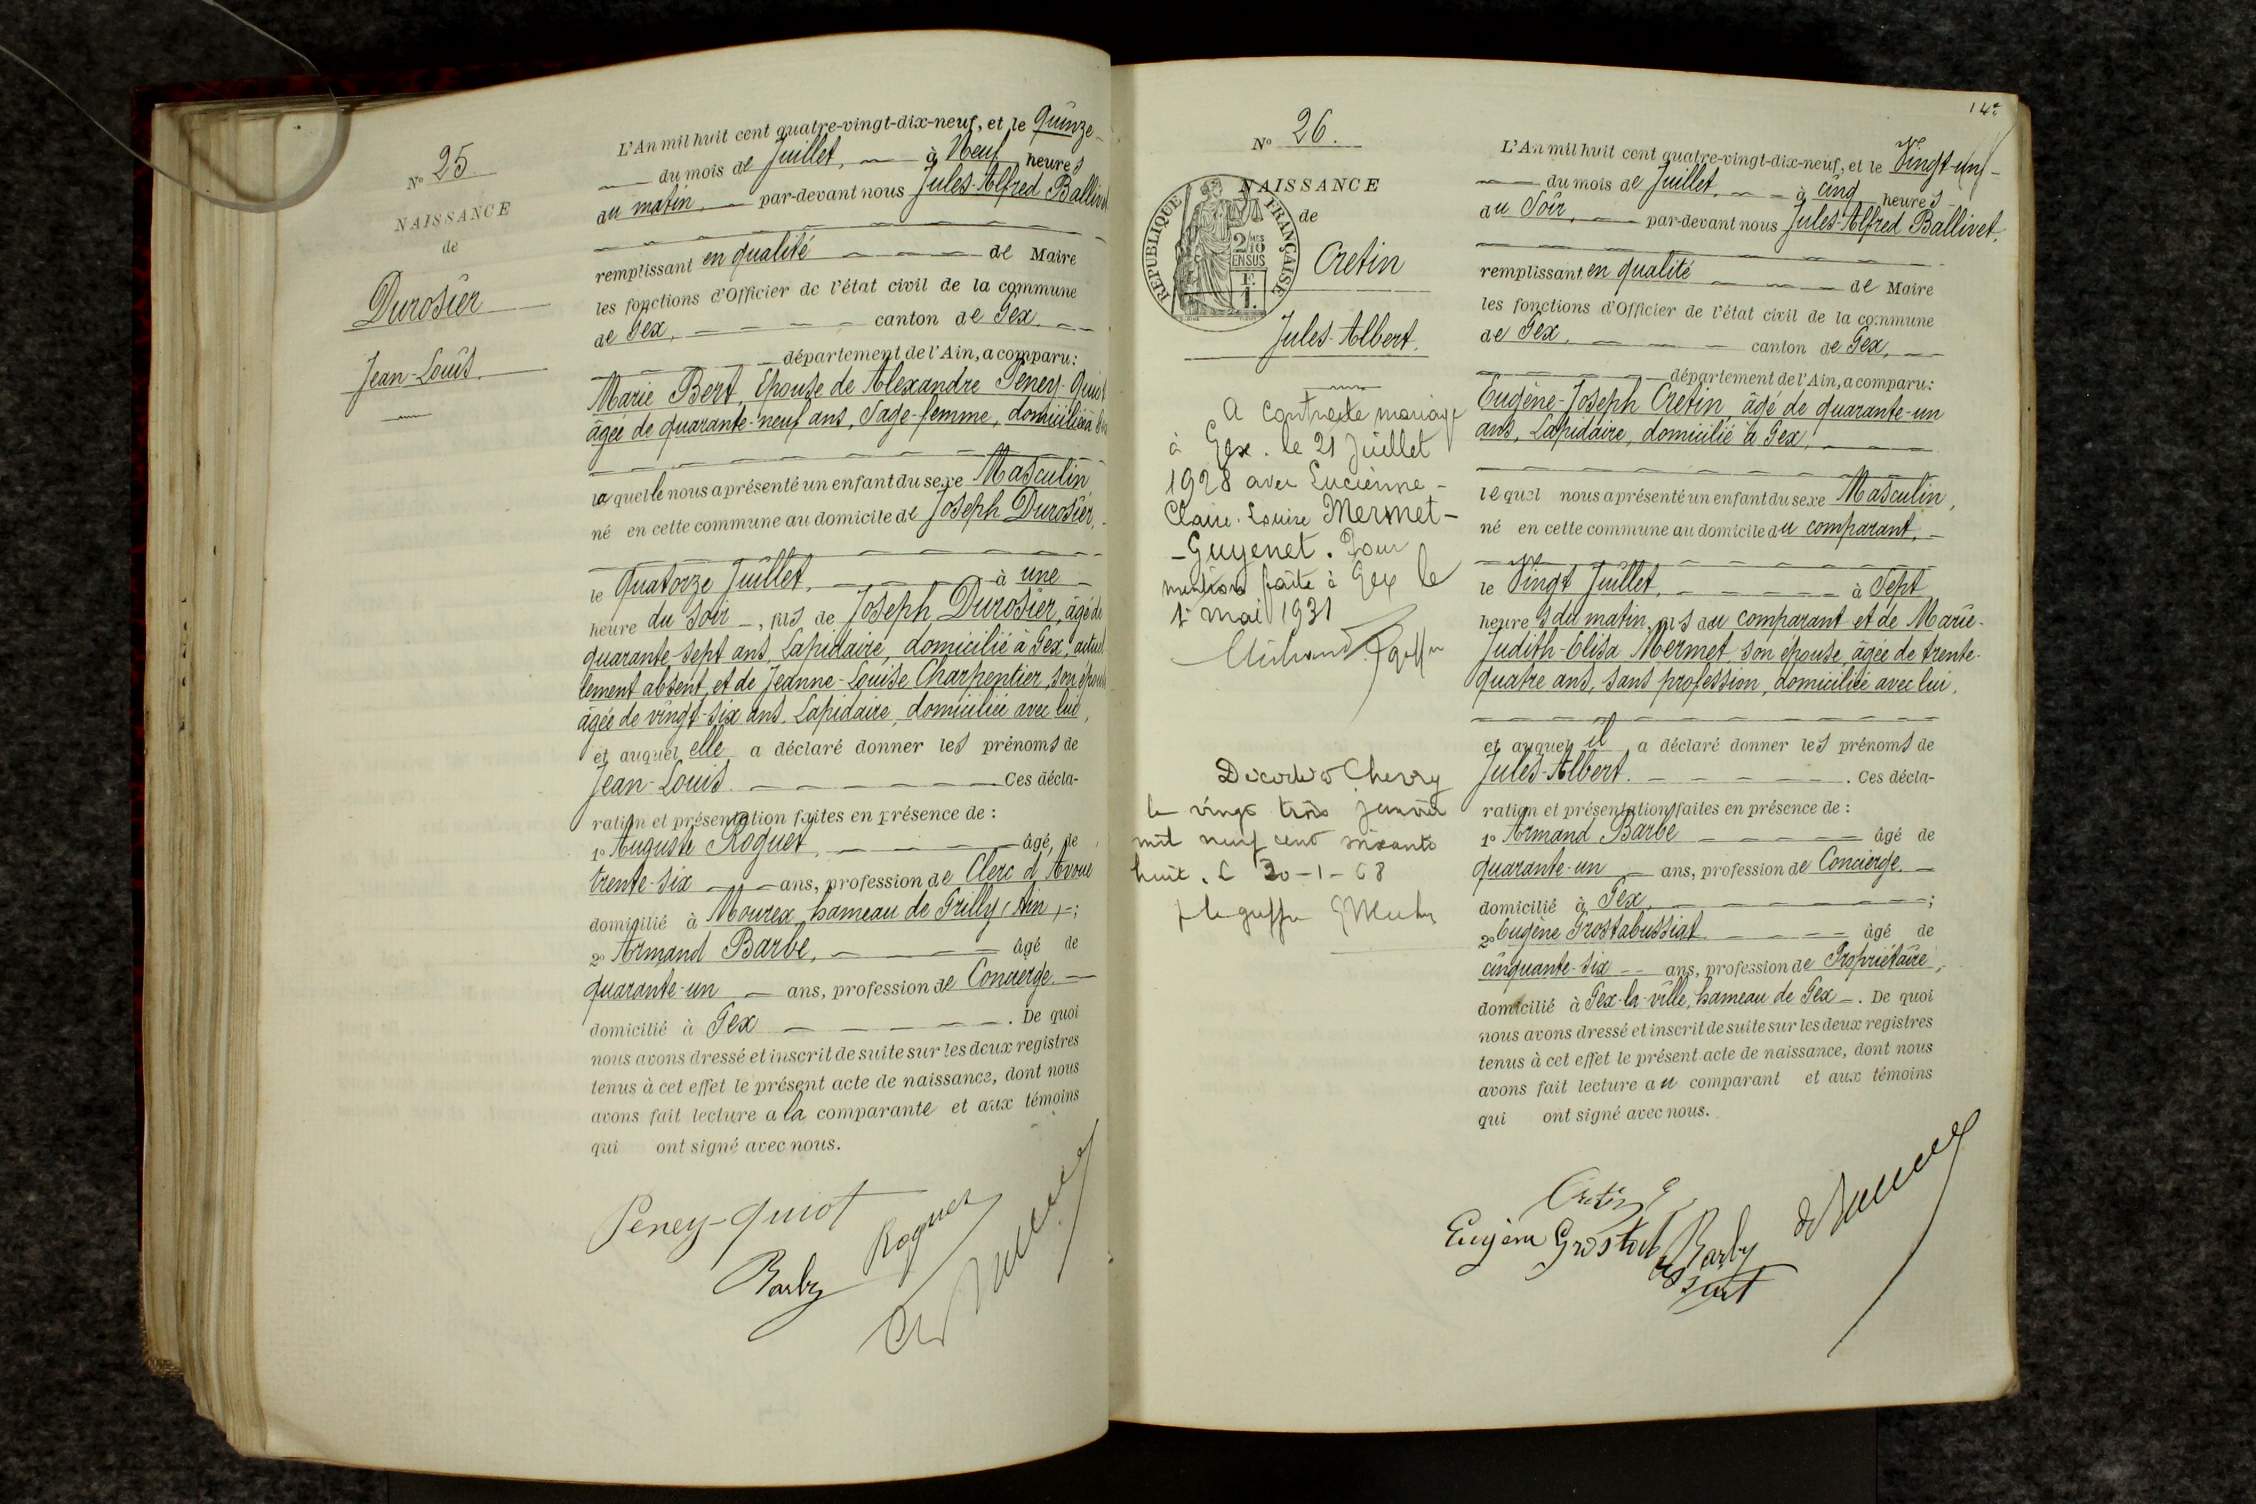 N° 25
NAISSANCE
de
Durosier
Jean-Louis.
L'An mil huit cent quatre-vingt-dix-neuf, et le quinze
du mois de Juillet, à Neuf heures
du matin, par-devant nous Jules-Alfred Ballivet
remplissant en qualité de Maire
les fonctions d'Officier de l'état civil de la commune
de Gex, canton de Gex
département de l'Ain, a comparu:
Marie Bert, épouse de Alexandre Peney-Quiot
âgée de quarante-neuf ans, Sage-femme, domiciliée à
laquelle nous a présenté un enfant du sexe Masculin
né en cette commune au domicile de Joseph Durosier,
le Quatorze Juillet, à une
heure du soir, fils de Joseph Durosier, âgé de
quarante-sept ans, Lapidaire, domicilié à Gex, actuel
lement absent, et de Jeanne-Louise Charpentier, son épouse
âgée de vingt-six ans, Lapidaire, domiciliée avec lui,
et auquel elle a déclaré donner les prénoms de
Jean-Louis. Ces décla-
ration et présentation faites en présence de :
1° Auguste Roguet, âgé de
trente-six ans, profession de Clerc d'Avoué
domicilié à Mourex, hameau de Grilly (Ain) ;
2° Armand Barbe, âgé de
quarante-un ans, profession de Concierge.
domicilié à Gex . De quoi
nous avons dressé et inscrit de suite sur les deux registres
tenus à cet effet le présent acte de naissance, dont nous
avons fait lecture a la comparante et aux témoins
qui ont signé avec nous.
Peney-Quiot
Roguet
Barby
14e
N° 26.
NAISSANCE
de
REPUBLIQUE FRANÇAISE
2/10 MES
EN SUS
F.
1.
Cretin
Jules-Albert.
A contracté mariage
à Gex. le 21 Juillet
1928 avec Lucienne-
Claire-Louise Mermet-
-Guyenet. Pour
mention faite à Gex le
1er mai 1931
Décédé à Chevry
le vingt trois janvier
mil neuf cent soixante
huit. Le 30-1-68
p le greffier
L'An mil huit cent quatre-vingt-dix-neuf, et le Vingt-un
du mois de Juillet, à cinq heures
du Soir, par-devant nous Jules-Alfred Ballivet,
remplissant en qualité de Maire
les fonctions d'Officier de l'état civil de la commune
de Gex, canton de Gex,
département de l'Ain, a comparu:
Eugène-Joseph Cretin, âgé de quarante-un
ans, Lapidaire, domicilié à Gex,
lequel nous a présenté un enfant du sexe Masculin,
né en cette commune au domicile du comparant,
le Vingt Juillet, à Sept
heures du matin, fils du comparant et de Marie-
Judith-Elisa Mermet, son épouse, âgée de trente-
quatre ans, sans profession, domiciliée avec lui,
et auquel il a déclaré donner les prénoms de
Jules-Albert. . Ces décla-
ration et présentation faites en présence de :
1° Armand Barbe âgé de
quarante-un ans, profession de Concierge.
domicilié à Gex, ;
2° Eugène Grostabussiat âgé de
cinquante-six ans, profession de Propriétaire,
domicilié à Gex-la-ville, hameau de Gex . De quoi
nous avons dressé et inscrit de suite sur les deux registres
tenus à cet effet le présent acte de naissance, dont nous
avons fait lecture au comparant et aux témoins
qui ont signé avec nous.
Cretin E
Eugène Grostabussiat
Barby